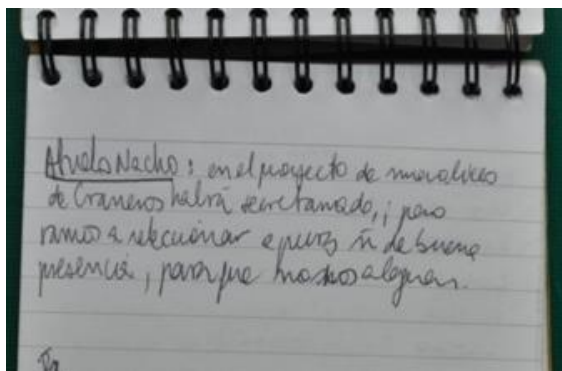 Abuelo Nacho: en el proyecto de murolitos
de Graneros habrá secretariado, ; pero
vamos a seleccionar a puras ñ de buena
presencia, para que nos alegren.